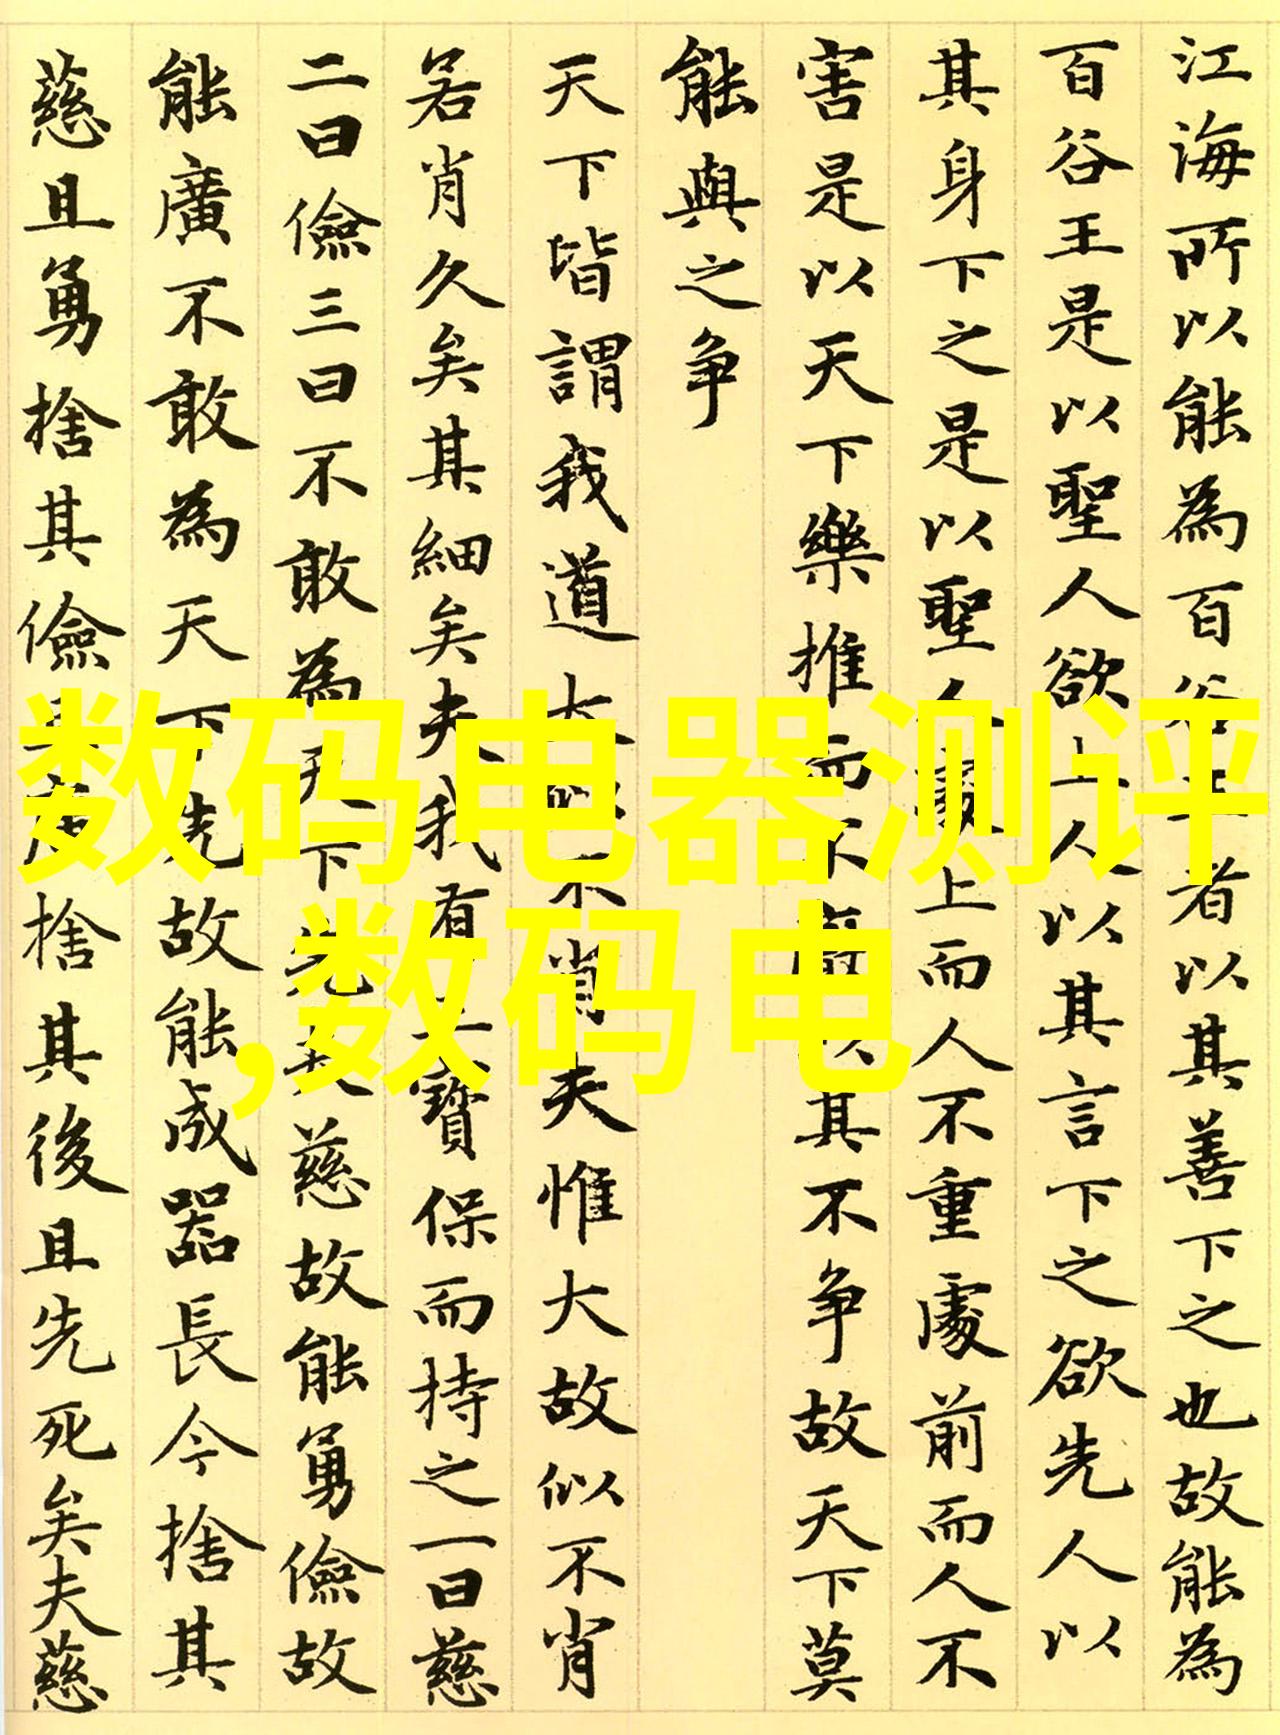 江海所以能為百谷王者以其善下之也故能為
百谷王是以聖人欲上人以其言下之欲先人以
其身下之是以聖人處上而人不重處前而人不
害是以天下樂推而不厭以其不争故天下莫
能與之争
天下皆謂我道大似不肖夫惟大故似不肖
若肖久矣其細矣夫我有三寶保而持之一曰慈
二曰儉三曰不敢為天下先夫慈故能勇儉故
能廣不敢為天下先故能成器長今捨其
慈且勇捨其儉且廣捨其後且先死矣夫慈
数码电器测评
,数码电